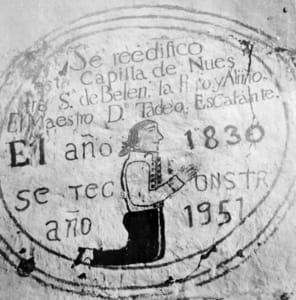 Se reedifico
esta Capilla de Nues
tro S. de Belen, la Rizo y Aliño
El Maestro D.º Tadeo, Escalante.
El año 1830
SE TEC ONSTR
año 1951